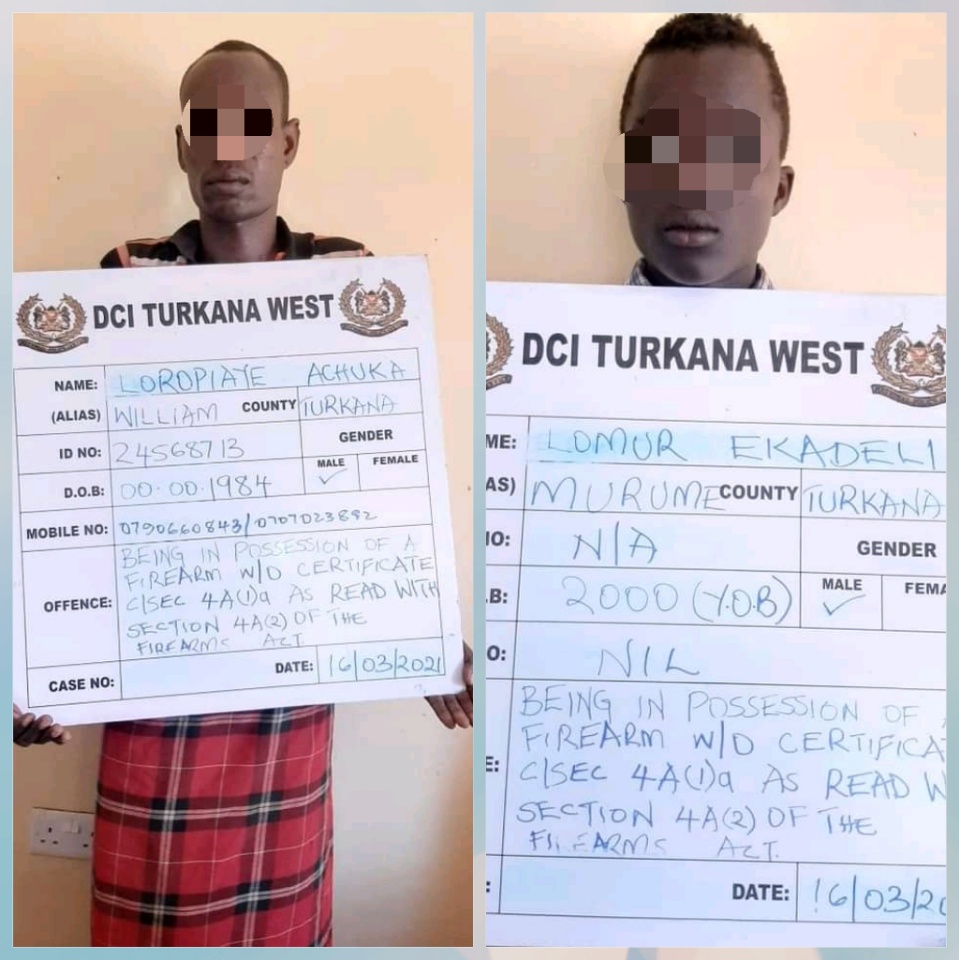 DCI TURKANA WEST
NAME: LOROPIATE ACHUKA
(ALIAS) WILLIAM COUNTY TURKANA
ID NO: 24568713 GENDER
MALE FEMALE
D.O.B: 00.00.1984 ✓
MOBILE NO: 0790660843/0707023892
BEING IN POSSESSION OF A
FIREARM W/O CERTIFICATE
OFFENCE: C/SEC 4A(1)a AS READ WITH
SECTION 4A(2) OF THE
FIREARMS ACT
CASE NO: DATE: 16/03/2021
DCI TURKANA WEST
ME: LOMUR EKADELI
AS) MURUME COUNTY TURKANA
IO: N/A GENDER
MALE FEMA
.B: 2000 (Y.O.B) ✓
O: NIL
BEING IN POSSESSION OF
FIREARM W/O CERTIFICA
E: C/SEC 4A(1)a AS READ W
SECTION 4A(2) OF THE
FIREARMS ACT.
: DATE: 16/03/20